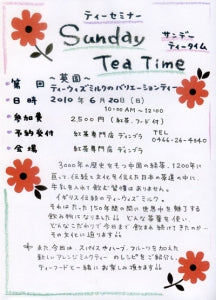 ティーセミナー
Sunday
Tea Time
サンデー
ティータイム
第 回 ～英国～
ティーウィズミルクのバリエーションティー
日時 2010年6月20日(日)
10:00 AM～12:00
参加費 2,500円(紅茶、フード付)
予約受付 紅茶専門店 ディンブラ TEL
0466-26-4340
会場 紅茶専門店 ディンブラ
3000年の歴史をもつ中国の紅茶、1200年に
亘って、伝統と文化を伝えた日本の茶道の中に、
牛乳を入れて飲む習慣はありません。
イギリス生まれのティーウィズミルク。
それはたった150年間に世界中を魅了する
飲み物になりました!! どんな茶葉を使い、
どんなこだわりで今日まで飲まれ続けてきたか…
その文化に迫ります!!
また今回は、スパイスやハーブ、フルーツを加えた
新しいアレンジミルクティーのレシピをご紹介し、
ティーフードと一緒にお楽しみ頂きます!!